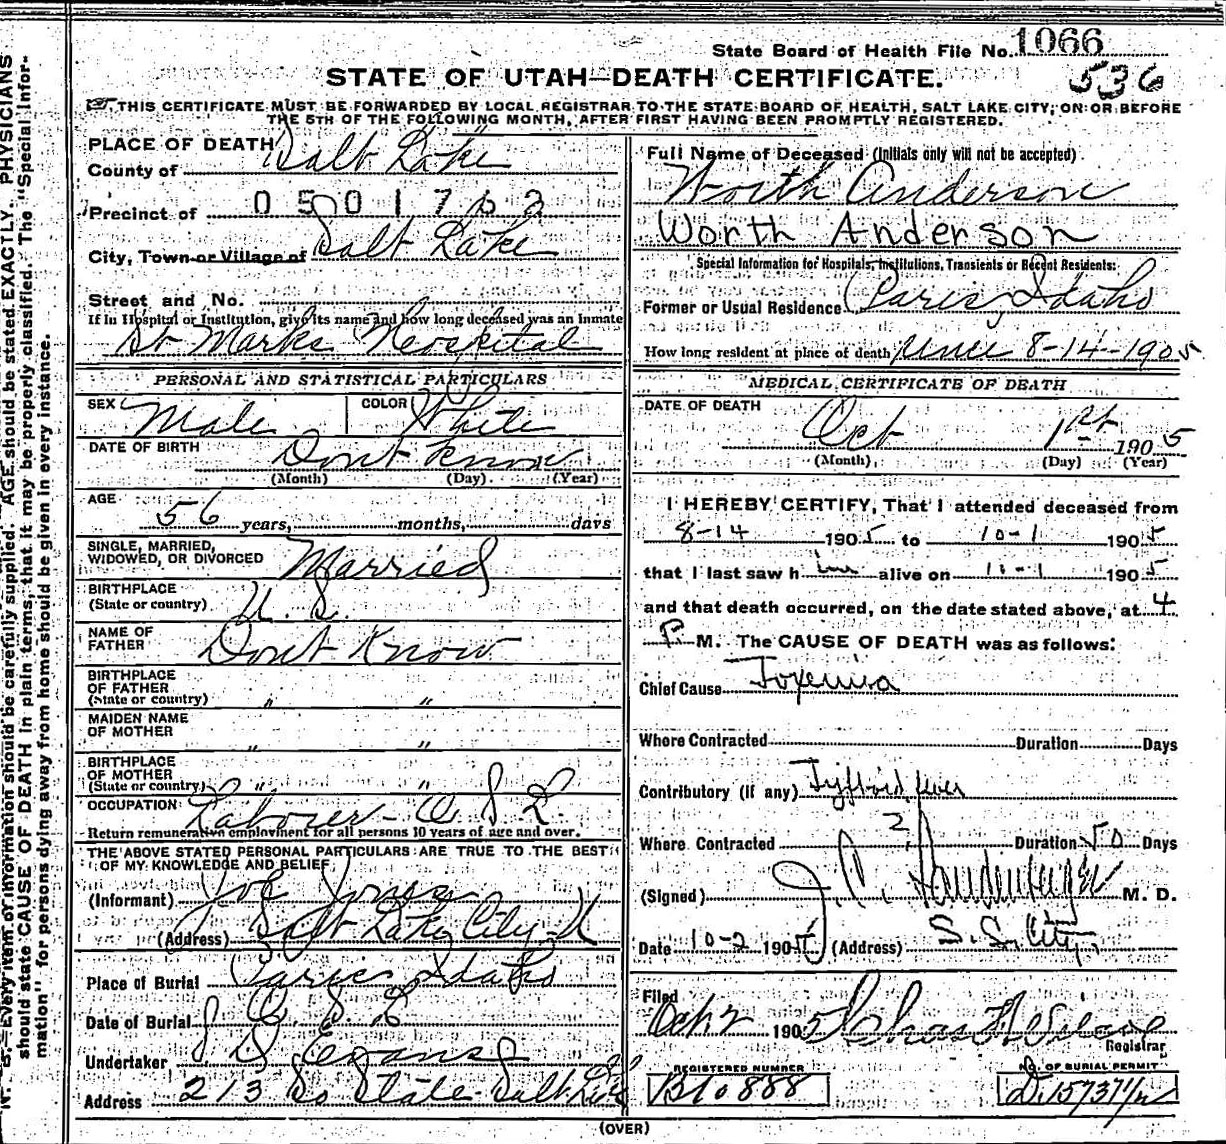 N. B.—Every item of information should be carefully supplied. AGE should be stated EXACTLY. PHYSICIANS
should state CAUSE OF DEATH in plain terms, that it may be properly classified. The "Special Infor-
mation" for persons dying away from home should be given in every instance.
State Board of Health File No. 1066
536
STATE OF UTAH—DEATH CERTIFICATE.
THIS CERTIFICATE MUST BE FORWARDED BY LOCAL REGISTRAR TO THE STATE BOARD OF HEALTH, SALT LAKE CITY, ON OR BEFORE
THE 5TH OF THE FOLLOWING MONTH, AFTER FIRST HAVING BEEN PROMPTLY REGISTERED.
PLACE OF DEATH
County of Salt Lake
Precinct of 0501762
City, Town or Village of Salt Lake
Street and No.
If in Hospital or Institution, give its name and how long deceased was an inmate
St Marks Hospital
PERSONAL AND STATISTICAL PARTICULARS
SEX Male COLOR White
DATE OF BIRTH Dont Know
(Month) (Day) (Year)
AGE
56 years, months, days
SINGLE, MARRIED,
WIDOWED, OR DIVORCED Married
BIRTHPLACE
(State or country) U. S.
NAME OF
FATHER Dont Know
BIRTHPLACE
OF FATHER
(State or country) " "
MAIDEN NAME
OF MOTHER " "
BIRTHPLACE
OF MOTHER
(State or country) " "
OCCUPATION Laborer - O S L
Return remunerative employment for all persons 10 years of age and over.
THE ABOVE STATED PERSONAL PARTICULARS ARE TRUE TO THE BEST
OF MY KNOWLEDGE AND BELIEF
(Informant) Joe Jones
(Address) Salt Lake City U
Place of Burial Paris Idaho
Date of Burial O. S. L
Undertaker S D Evans
Address 213 So State Salt Lake
Full Name of Deceased (Initials only will not be accepted)
Worth Anderson
Worth Anderson
Special Information for Hospitals, Institutions, Transients or Recent Residents:
Former or Usual Residence Paris, Idaho
How long resident at place of death Since 8-14-1905
MEDICAL CERTIFICATE OF DEATH
DATE OF DEATH
Oct 1st 1905
(Month) (Day) (Year)
I HEREBY CERTIFY, That I attended deceased from
8-14 1905 to 10-1 1905
that I last saw him alive on 10-1 1905
and that death occurred, on the date stated above, at 4
P M. The CAUSE OF DEATH was as follows:
Chief Cause Toxemia
Where Contracted Duration Days
Contributory (if any) Typhoid fever
Where Contracted ? Duration 50 Days
(Signed) J. C. M. D.
Date 10-2 1905 (Address) S. L. City
Filed
Oct 2 1905
Registrar
REGISTERED NUMBER
B10888
NO. OF BURIAL PERMIT
(OVER)